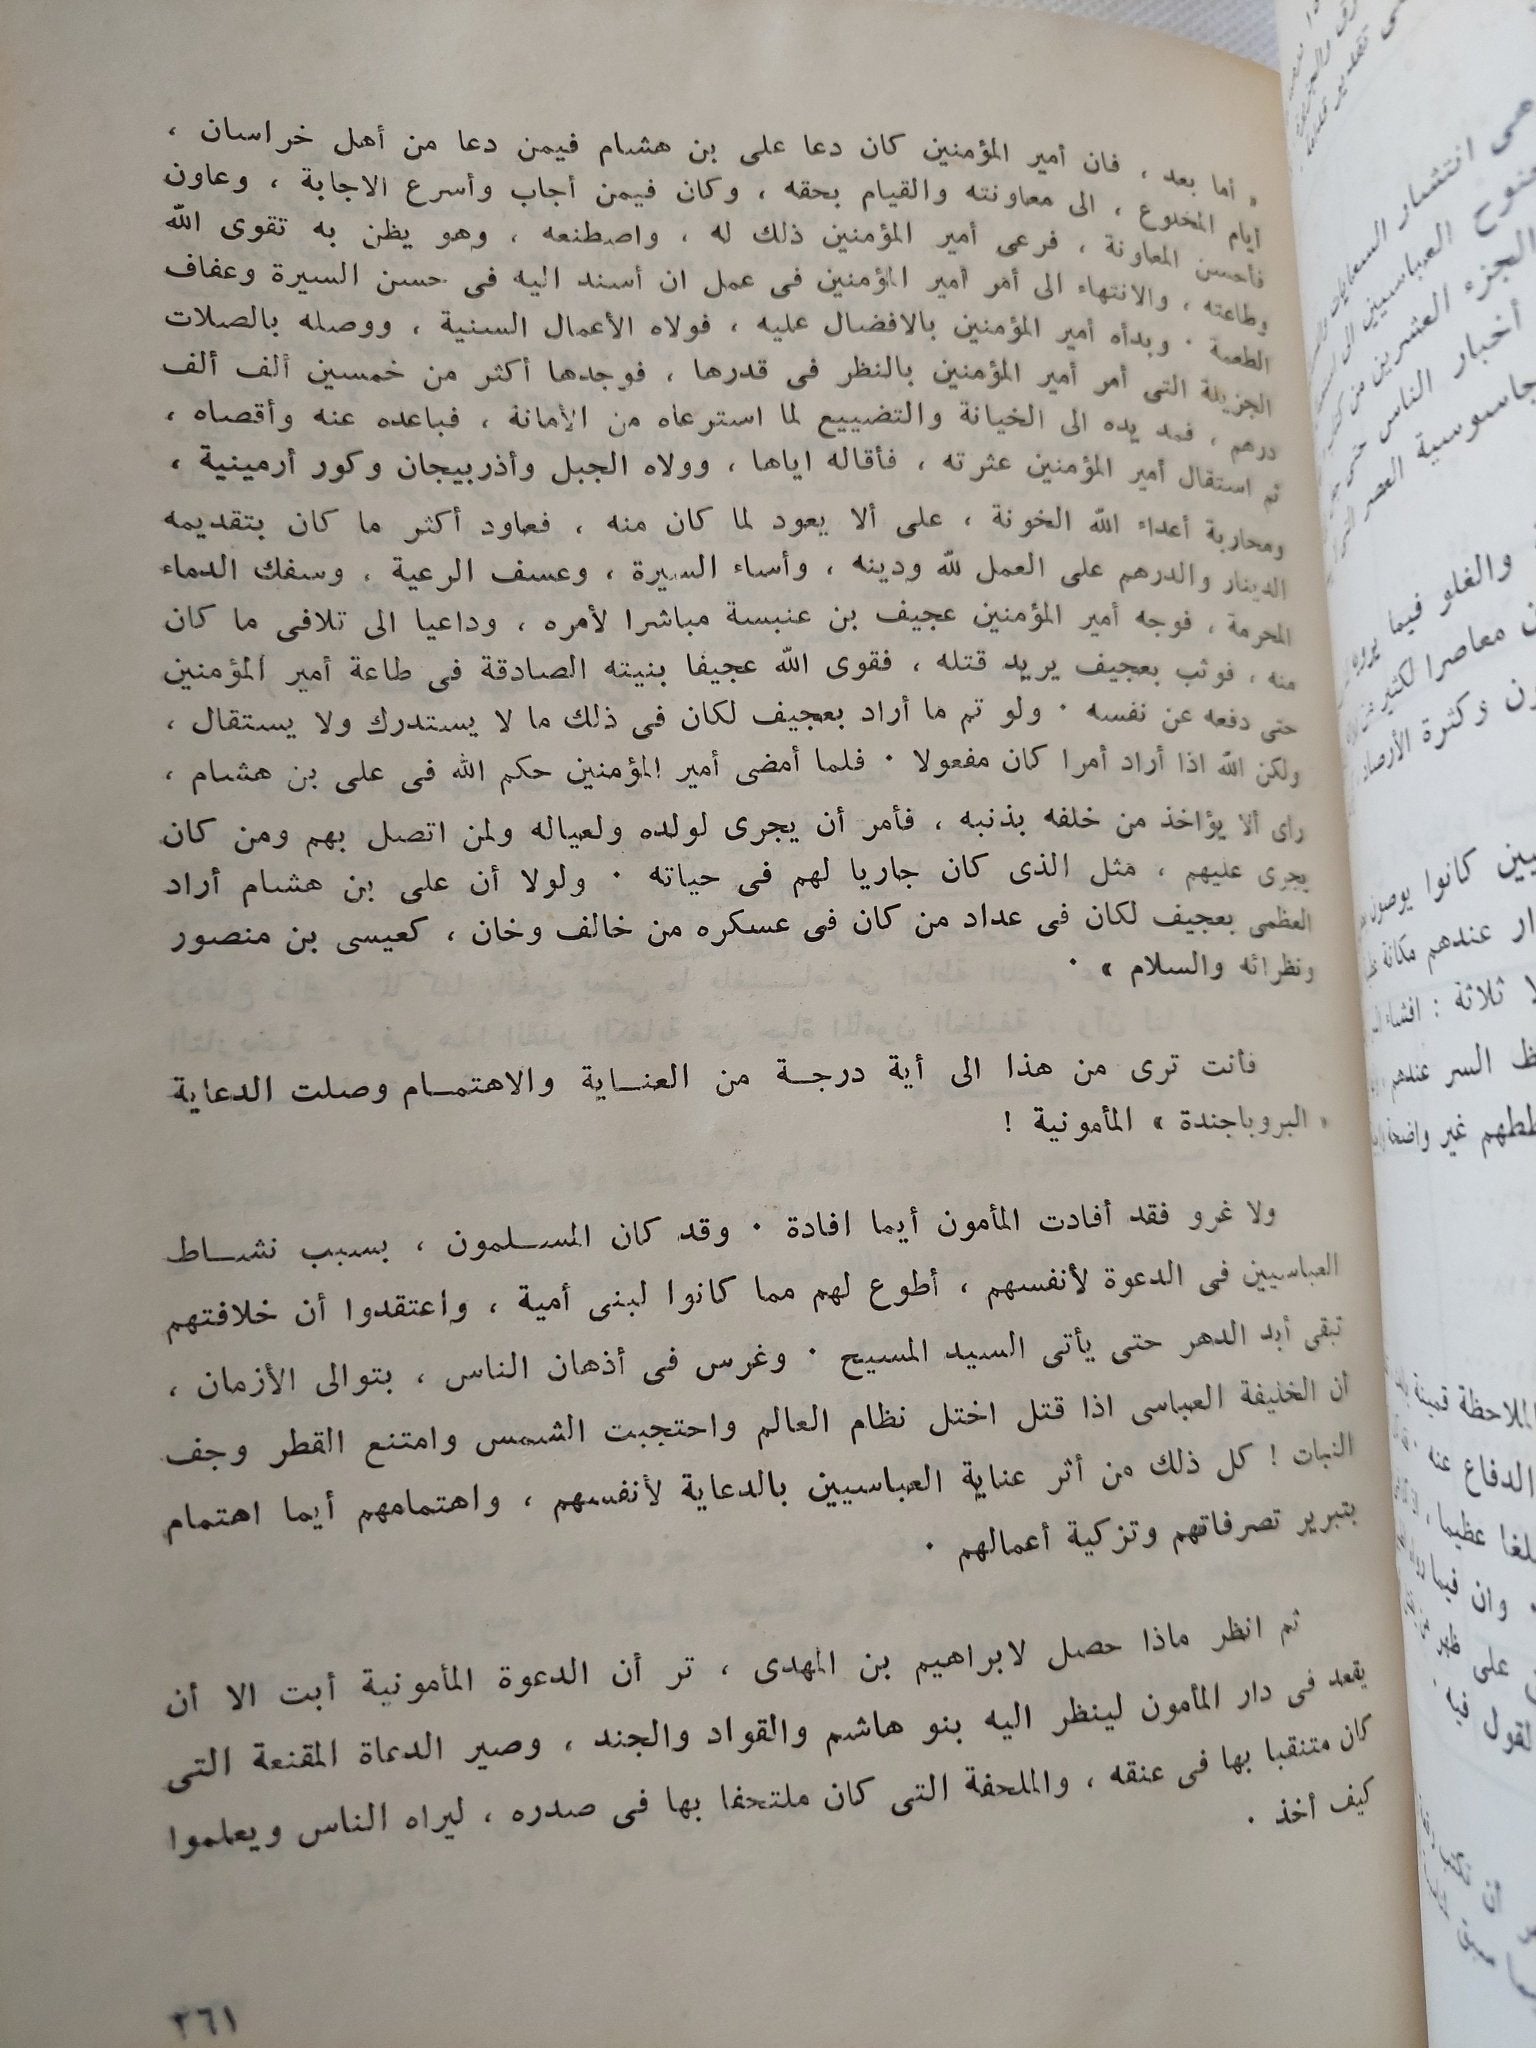 « أما بعد ، فان أمير المؤمنين كان دعا على بن هشام فيمن دعا من أهل خراسان ،
أيام المخلوع ، الى معاونته والقيام بحقه ، وكان فيمن أجاب وأسرع الاجابة ، وعاون
فأحسن المعاونة ، فرعى أمير المؤمنين ذلك له ، واصطنعه ، وهو يظن به تقوى الله
وطاعته ، والانتهاء الى أمر أمير المؤمنين فى عمل ان أسند اليه فى حسن السيرة وعفاف
الطعمة · وبدأه أمير المؤمنين بالافضال عليه ، فولاه الأعمال السنية ، ووصله بالصلات
الجزيلة التى أمر أمير المؤمنين بالنظر فى قدرها ، فوجدها أكثر من خمسين ألف ألف
درهم ، فمد يده الى الخيانة والتضييع لما استرعاه من الأمانة ، فباعده عنه وأقصاه ،
ثم استقال أمير المؤمنين عثرته ، فأقاله اياها ، وولاه الجبل وأذربيجان وكور أرمينية ،
ومحاربة أعداء الله الخونة ، على ألا يعود لما كان منه ، فعاود أكثر ما كان بتقديمه
الدينار والدرهم على العمل لله ودينه ، وأساء السيرة ، وعسف الرعية ، وسفك الدماء
المحرمة ، فوجه أمير المؤمنين عجيف بن عنبسة مباشرا لأمره ، وداعيا الى تلافى ما كان
منه ، فوثب بعجيف يريد قتله ، فقوى الله عجيفا بنيته الصادقة فى طاعة أمير المؤمنين
حتى دفعه عن نفسه · ولو تم ما أراد بعجيف لكان فى ذلك ما لا يستدرك ولا يستقال ،
ولكن الله اذا أراد أمرا كان مفعولا · فلما أمضى أمير المؤمنين حكم الله فى على بن هشام ،
رأى ألا يؤاخذ من خلفه بذنبه ، فأمر أن يجرى لولده ولعياله ولمن اتصل بهم ومن كان
يجرى عليهم ، مثل الذى كان جاريا لهم فى حياته · ولولا أن على بن هشام أراد
العظمى بعجيف لكان فى عداد من كان فى عسكره من خالف وخان ، كعيسى بن منصور
ونظرائه والسلام » ·
فأنت ترى من هذا الى أية درجة من العناية والاهتمام وصلت الدعاية
« البروباجندة » المأمونية !
ولا غرو فقد أفادت المأمون أيما افادة · وقد كان المسلمون ، بسبب نشاط
العباسيين فى الدعوة لأنفسهم ، أطوع لهم مما كانوا لبنى أمية ، واعتقدوا أن خلافتهم
تبقى أبد الدهر حتى يأتى السيد المسيح · وغرس فى أذهان الناس ، بتوالى الأزمان ،
أن الخليفة العباسى اذا قتل اختل نظام العالم واحتجبت الشمس وامتنع القطر وجف
النبات ! كل ذلك من أثر عناية العباسيين بالدعاية لأنفسهم ، واهتمامهم أيما اهتمام
بتبرير تصرفاتهم وتزكية أعمالهم ·
ثم انظر ماذا حصل لابراهيم بن المهدى ، تر أن الدعوة المأمونية أبت الا أن
يقعد فى دار المأمون لينظر اليه بنو هاشم والقواد والجند ، وصير الدعاة المقنعة التى
كان متنقبا بها فى عنقه ، والملحفة التى كان ملتحفا بها فى صدره ، ليراه الناس ويعلموا
كيف أخذ ·
٣٦١
انتشار السعايات
العباسيين الى
الجزء العشرين من
أخبار الناس حتى
جاسوسية العصر
والغلو فيما
معاصرا لكثير
وكثرة الأرصاد
كانوا يوصون
عندهم مكانة
ثلاثة : افشاء
السر عندهم
غير واضحة
الملاحظة قمينة
الدفاع عنه
عظيما ،
وان فيما
على
القول فيه